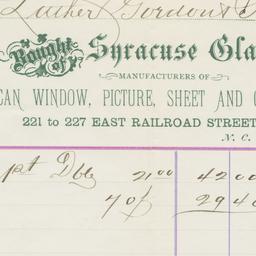 Luther Gordon &
Bought of Syracuse Gla
MANUFACTURERS OF
CAN WINDOW, PICTURE, SHEET AND
221 to 227 EAST RAILROAD STREET
N. C.
pt Dble 21 00 42 00
70 f 29 40